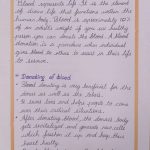 Blood represents life. It is the stream
of divine life that functions within the
human body. Blood is approximately 10%
of an adults weight. If you are healthy
person you can donate the blood. A blood
donation is a practice when individual
give blood to others to assist in their life
to
• Donating of blood
• Blood donating is very beneficial for the
donor as well as the
• It saves lives and helps people to come
over their critical situations.
• After donating blood, the donor's body
get revitalized and generate new cells
which freshen it up and keep their
heart healthy.